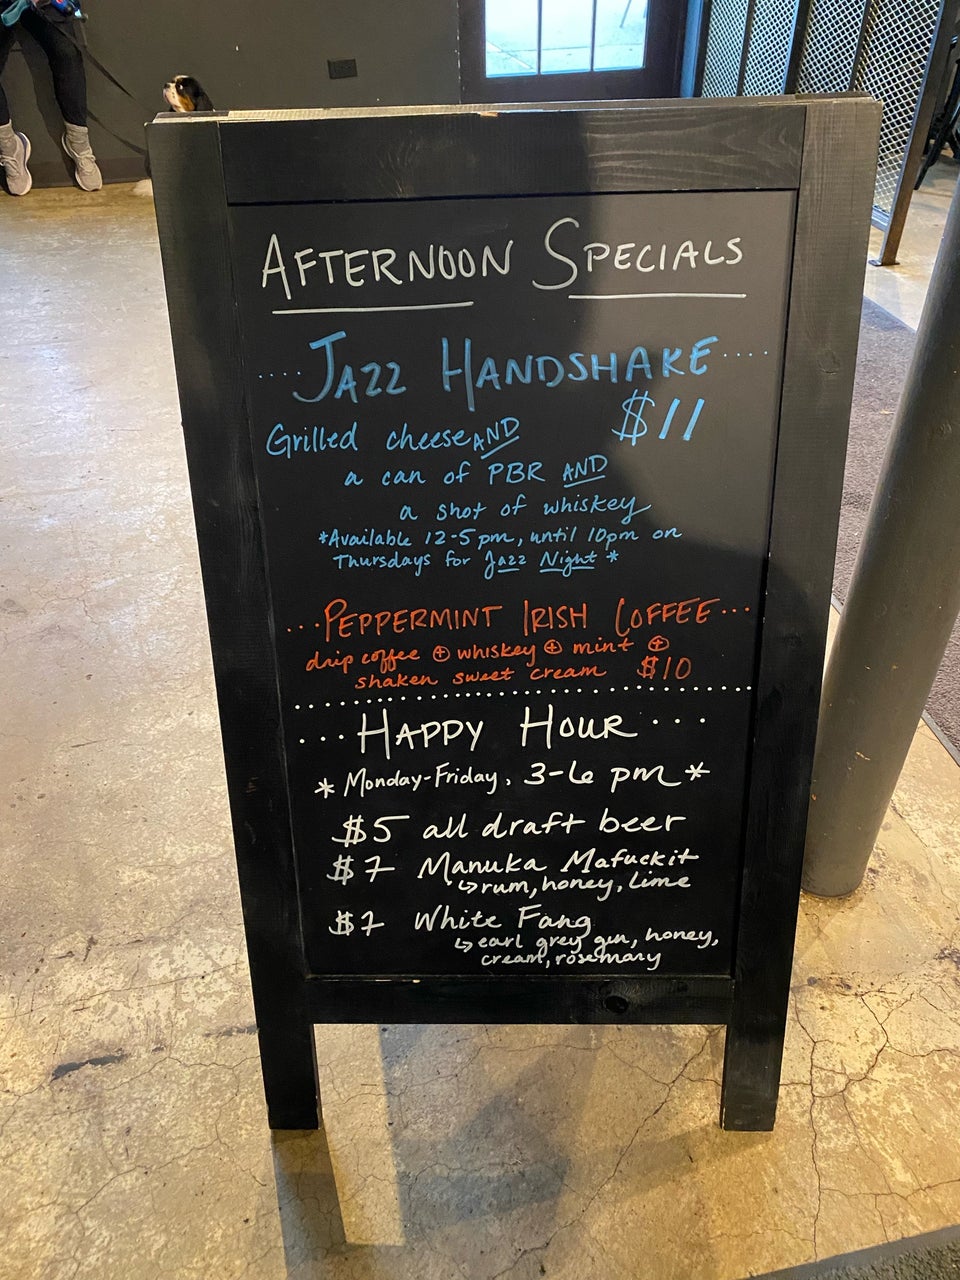 AFTERNOON SPECIALS
....JAZZ HANDSHAKE....
$11
Grilled cheese AND
a can of PBR AND
a shot of whiskey
*Available 12-5pm, until 10pm on
Thursdays for Jazz Night*
...PEPPERMINT IRISH COFFEE...
drip coffee ⊕ whiskey ⊕ mint ⊕
shaken sweet cream $10
...HAPPY HOUR...
*Monday-Friday, 3-6 pm*
$5 all draft beer
$7 Manuka Mafuckit
↳rum, honey, lime
$7 White Fang
↳earl grey gin, honey,
cream, rosemary